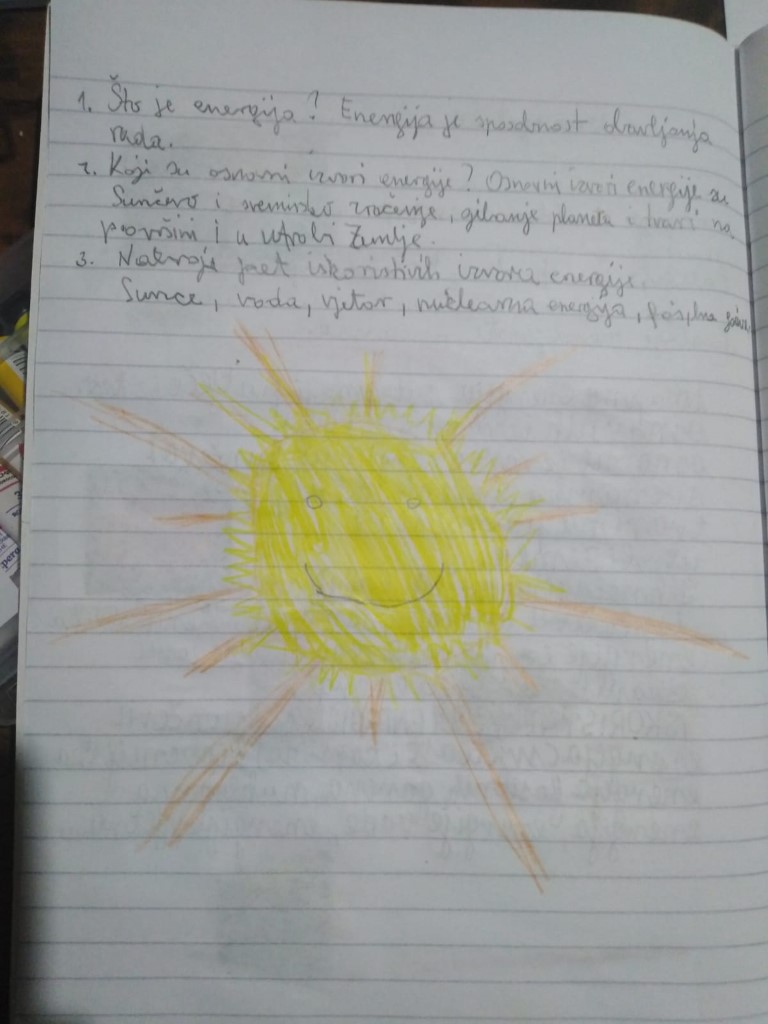 1. Što je energija? Energija je sposobnost obavljanja
rada.
2. Koji su osnovni izvori energije? Osnovni izvori energije su
Sunčevo i svemirsko zračenje, gibanje planeta i tvari na
površini i u utrobi Zemlje.
3. Nabroji pet iskoristivih izvora energije.
Sunce, voda, vjetar, nuklearna energija, fosilna